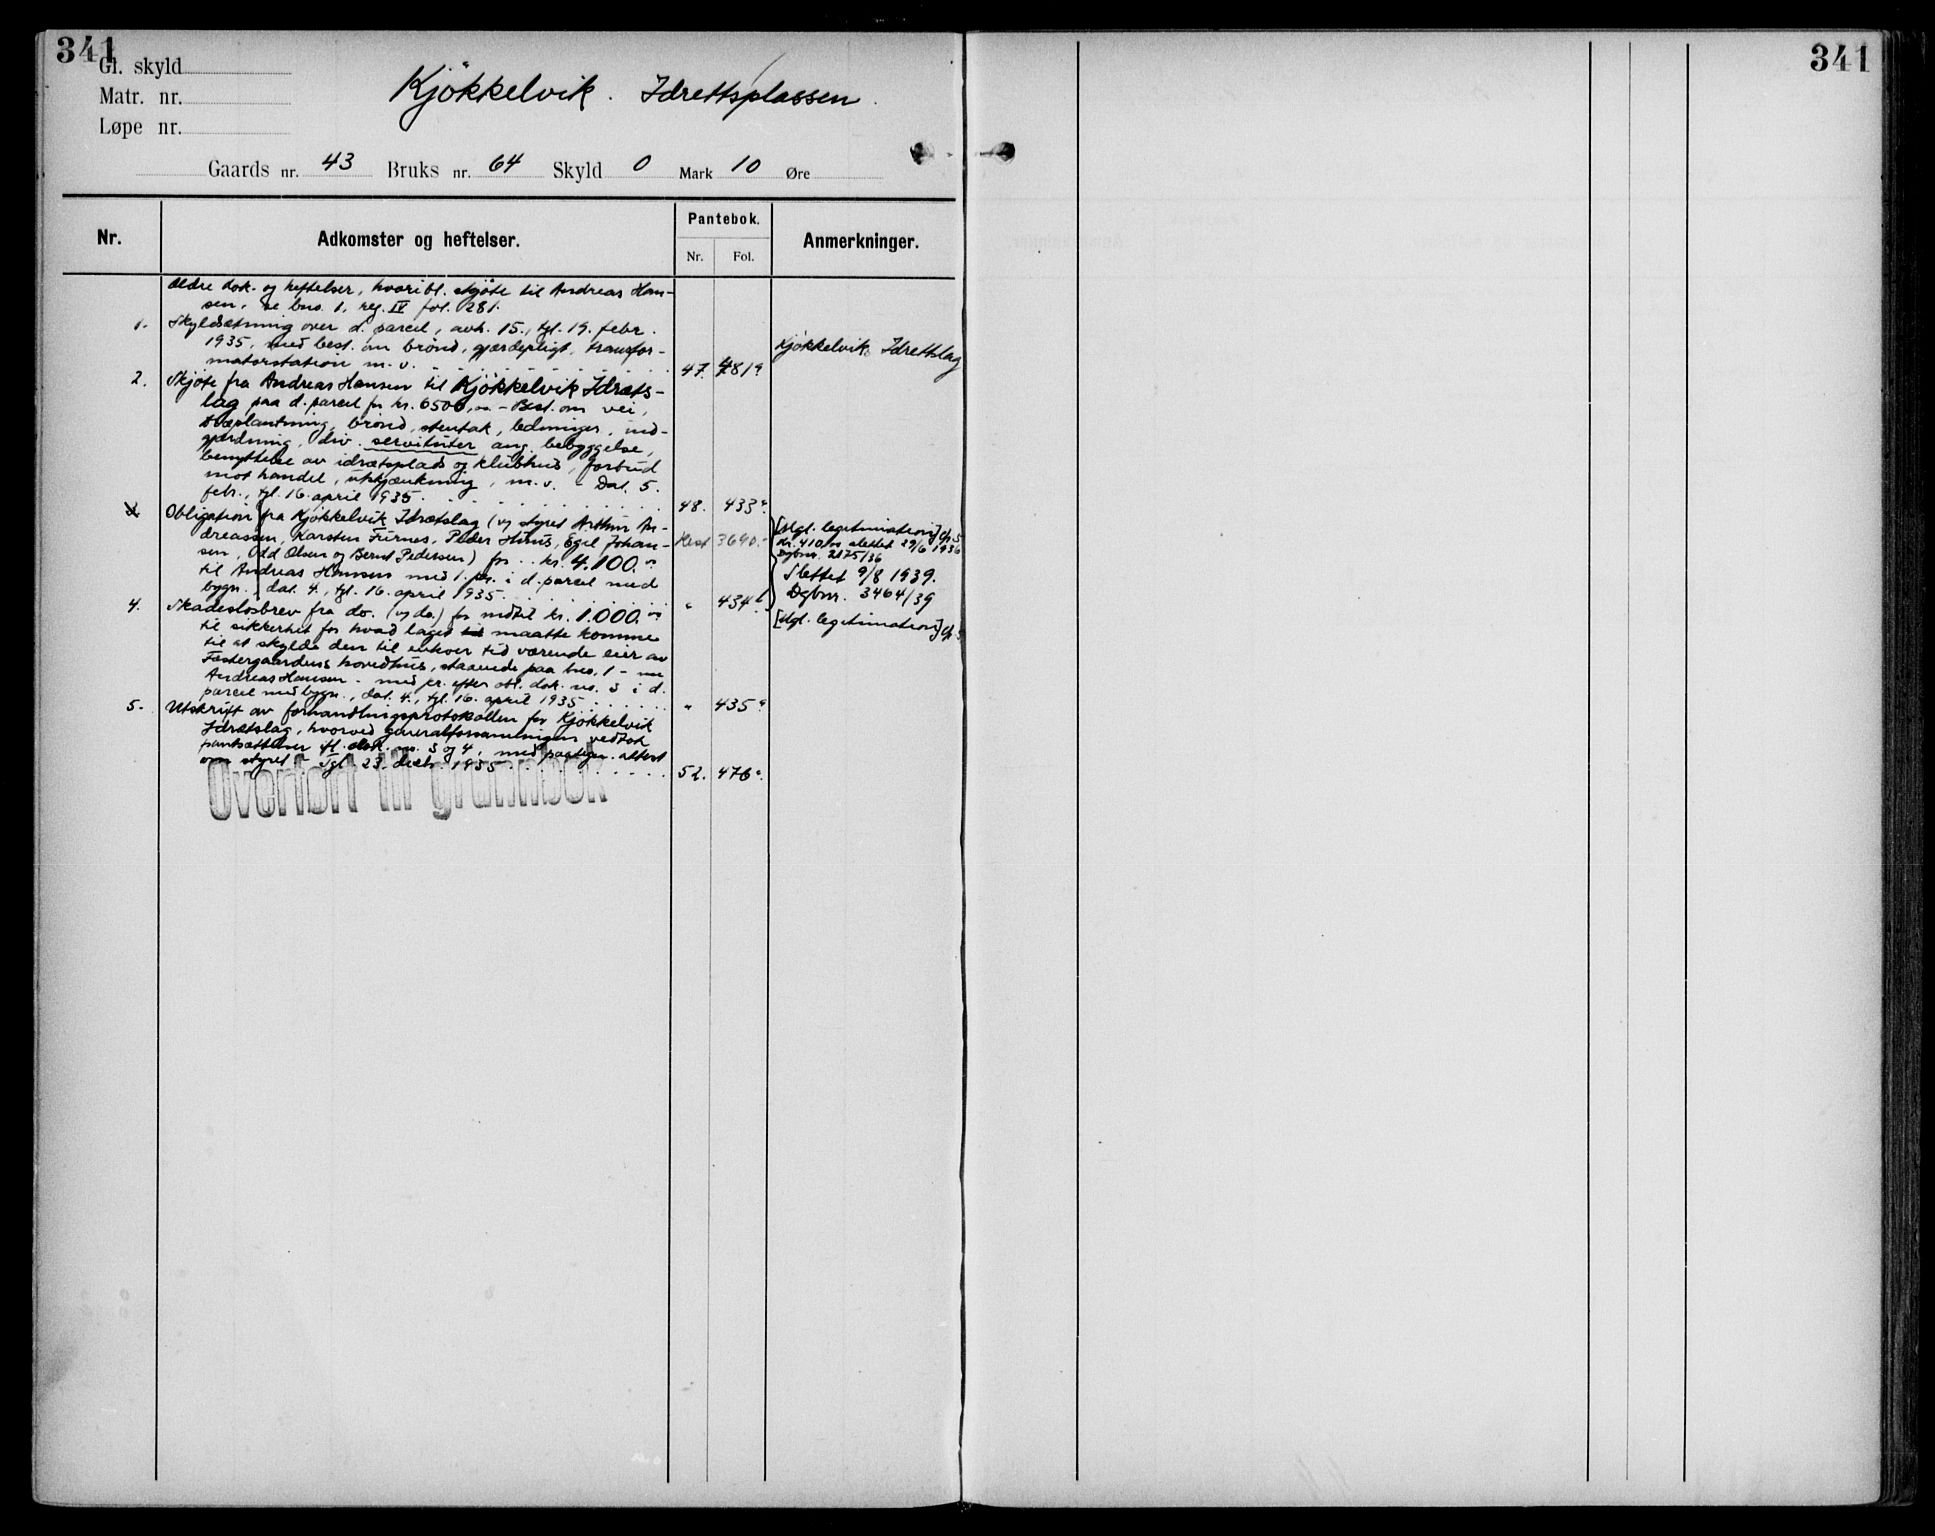 341
341
Gl. skyld
Matr. nr.
Løpe nr.
Kjøkkelvik. Idrettsplassen.
Gaards nr. 43 Bruks nr. 64 Skyld 0 Mark 10 Øre
Nr. Adkomster og heftelser. Pantebok. Anmerkninger.
Nr. Fol.
Ældre dok. og heftelser, hvoribl. skjøte til Andreas Han-
sen, se bno. 1, reg. IV fol. 281.
1. Skyldsætning over d. parcel, avh. 15., tgl. 19. febr.
1935, med best. om brønd, gjærdepligt, transfor-
matorstation m. v. 47. 781a
Kjøkkelvik Idrettslag
2. Skjøte fra Andreas Hansen til Kjøkkelvik Idræts-
lag paa d. parcel for kr. 6500,00 - Best. om vei,
træplantning, brønd, stentak, ledninger, ind-
gjærdning, div. servituter ang. bebyggelse,
benyttelse av idrætsplads og klubhus, forbud
mot handel, utskjænkning, m. v. - Dat. 5.
febr., tgl. 16. april 1935. 48. 433a
Obligation fra Kjøkkelvik Idrætslag (v/ styret Arthur An-
dreassen, Karsten Furnes, Peder Hius, Egil Johan-
sen, Odd Olsen og Bernt Pedersen) for kr. 4.100.00
til Andreas Hansen med 1. pr. i d. parcel med
bygn., dat. 4., tgl. 16. april 1935. " 434b
Rest 3690.-
[Mgl. legitimation] cfr. 5
Kr. 410,00 slettet 29/6 1936
Dgbnr. 2175/36
Slettet 9/8 1939.
Dgbnr. 3464/39
4. Skadesløsbrev fra do. (v/ do.) for indtil kr. 1.000.00
til sikkerhet for hvad laget maatte komme
til at skylde den til enhver tid værende eier av
Fæstergaardens hovedhus, staaende paa bno. 1 - nu
Andreas Hansen - med pr. efter obl. dok. no. 3 i d.
parcel med bygn., dat. 4., tgl. 16. april 1935 " 435a
[Mgl. legitimation] cfr. 5
5. Utskrift av forhandlingsprotokollen for Kjøkkelvik
Idrætslag, hvorved generalforsamlingen vedtok
pantsættelser ifl. dok. no. 3 og 4, med paategn. attest
om styret - Tgl. 23. decbr. 1935 52. 476a.
Overført til grunnbok